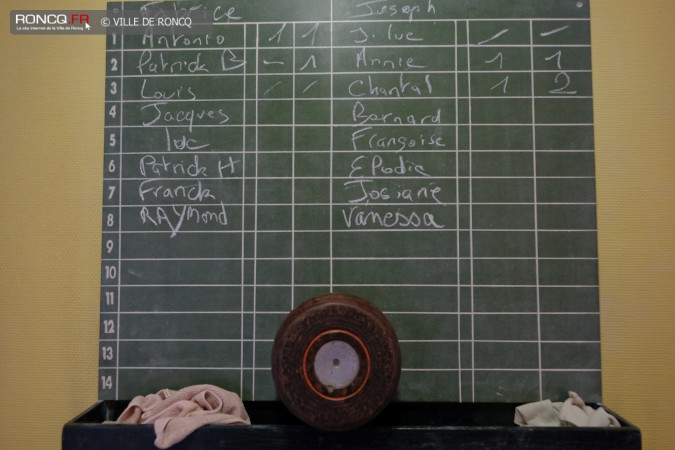 RONCQ.FR © VILLE DE RONCQ
Le site internet de la Ville de Roncq
Joseph
1 Antonio 1 1 J. luc - -
2 Patrick B - 1 Annie 1 1
3 Louis / / Chantal 1 2
4 Jacques Bernard
5 luc Françoise
6 Patrick H Elodie
7 Franck Josiane
8 RAymond Vanessa
9
10
11
12
13
14